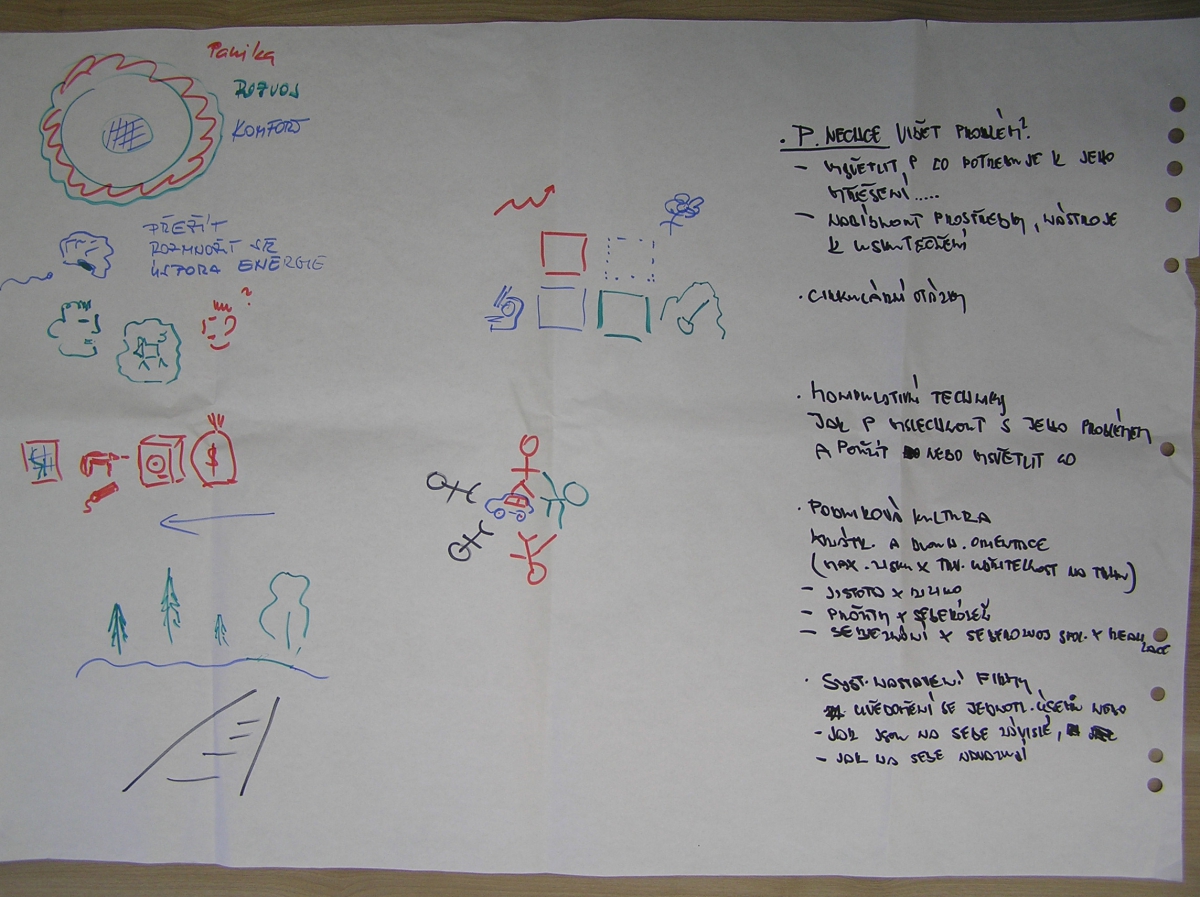 Panika
ROZVOJ
KOMFORT
PŘEŽÍT
ROZMNOŽIT SE
ÚSPORA ENERGIE
?
$
· P. NECHCE VIDĚT PROBLÉM?
- VYSVĚTLIT P CO POTŘEBUJE K JEHO
VYŘEŠENÍ.....
- NABÍDNOUT PROSTŘEDKY, NÁSTROJE
K USKUTEČNĚNÍ
· CIRKULÁRNÍ OTÁZKY
· TECHNIKY
JAK P S JEHO PROBLÉMEM
A POUŽÍT NEBO VYSVĚTLIT CO
· PODNIKOVÁ KULTURA
KRÁTK. A DLOUH. ORIENTACE
(MAX. ZISKU × TRV. UDRŽITELNOST NA TRHU)
- JISTOTA × RIZIKO
- PROFITY ×
- × SEBEROZVOJ × REALIZACE
· SYST. NASTAVENÍ FIRMY
UVĚDOMĚNÍ SE JEDNOTL. ÚSEKŮ NEBO
- JAK JSOU NA SEBE ZÁVISLÉ,
- JAK NA SEBE NAVAZUJÍ